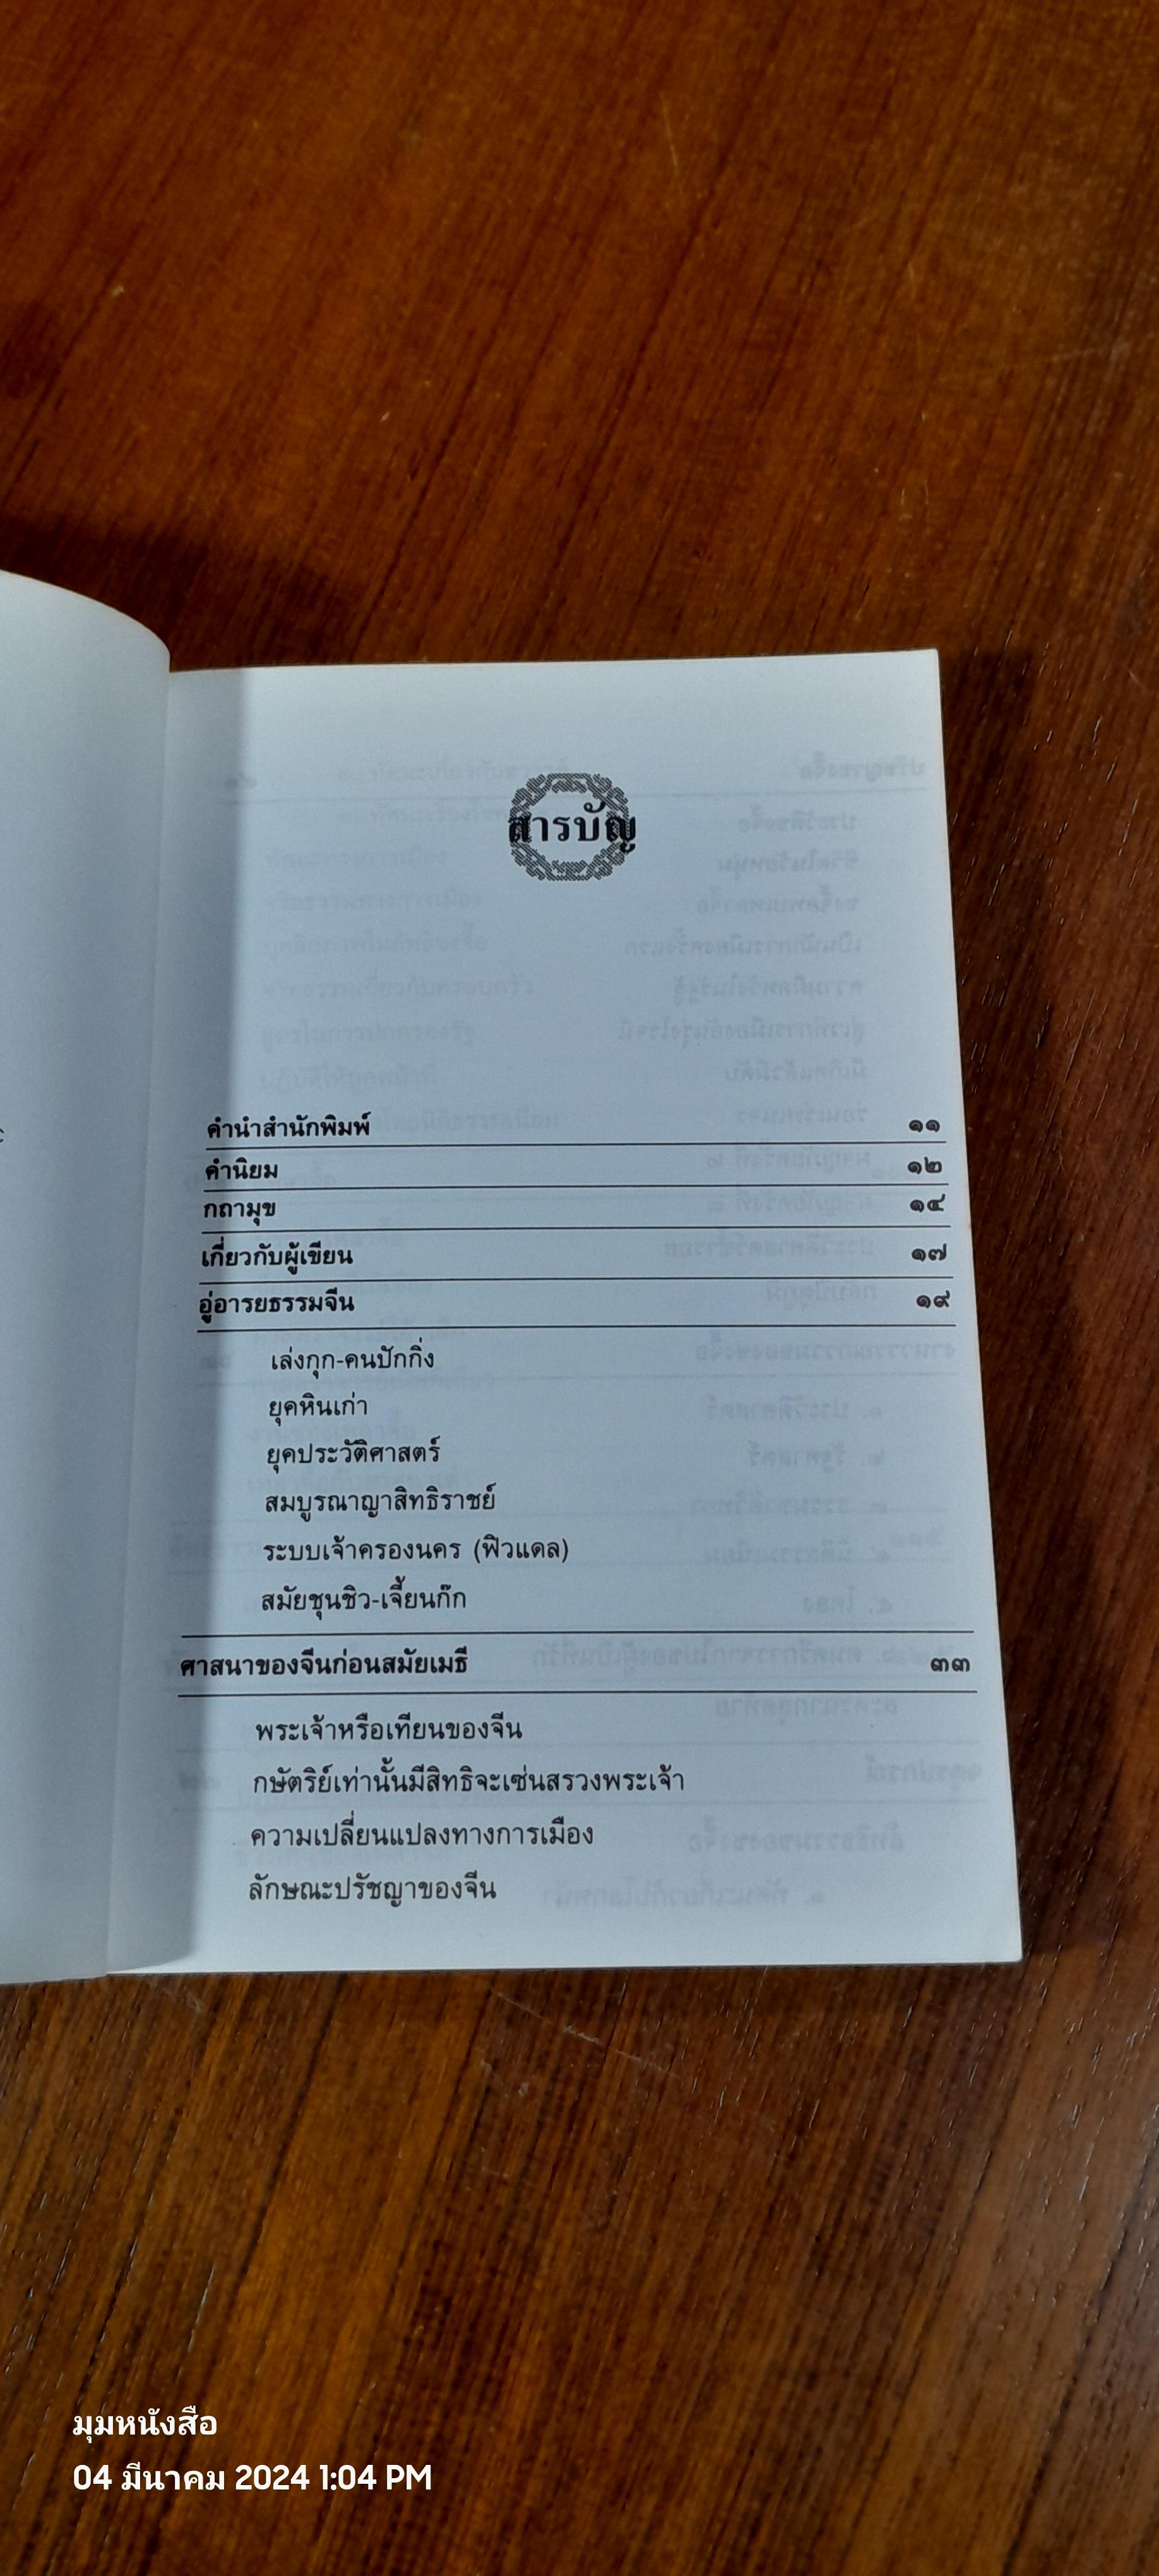 สารบัญ
คำนำสำนักพิมพ์ ๑๑
คำนิยม ๑๒
กถามุข ๑๔
เกี่ยวกับผู้เขียน ๑๗
อู่อารยธรรมจีน ๑๙
เล่งกุก-คนปักกิ่ง
ยุคหินเก่า
ยุคประวัติศาสตร์
สมบูรณาญาสิทธิราชย์
ระบบเจ้าครองนคร (ฟิวแดล)
สมัยชุนชิว-เจี้ยนก๊ก
ศาสนาของจีนก่อนสมัยเมธี ๓๓
พระเจ้าหรือเทียนของจีน
กษัตริย์เท่านั้นมีสิทธิจะเซ่นสรวงพระเจ้า
ความเปลี่ยนแปลงทางการเมือง
ลักษณะปรัชญาของจีน
มุมหนังสือ
04 มีนาคม 2024 1:04 PM